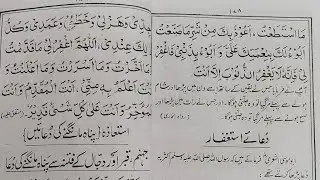 مَا اسْتَطَعْتُ، اَعُوْذُ بِكَ مِنْ شَرِّ مَا صَنَعْتُ
اَبُوْءُ لَكَ بِنِعْمَتِكَ عَلَيَّ وَ اَبُوْءُ بِذَنْبِيْ فَاغْفِرْ
لِيْ فَاِنَّهُ لَا يَغْفِرُ الذُّنُوْبَ اِلَّا اَنْتَ
دعائے استغفار
فرماتے ہیں کہ رسول اللہ صلی اللہ علیہ وسلم
جِدِّيْ وَهَزْلِيْ وَخَطَئِيْ وَعَمْدِيْ وَكُلُّ
ذٰلِكَ عِنْدِيْ، اَللّٰهُمَّ اغْفِرْ لِيْ مَا قَدَّمْتُ
وَمَا اَخَّرْتُ وَمَا اَسْرَرْتُ وَمَا اَعْلَنْتُ وَمَا
اَنْتَ اَعْلَمُ بِهٖ مِنِّيْ، اَنْتَ الْمُقَدِّمُ وَاَنْتَ
الْمُؤَخِّرُ وَاَنْتَ عَلٰى كُلِّ شَيْءٍ قَدِيْرٌ
استعاذہ (پناہ مانگنے کی دعائیں)
جہنم، قبر اور دجال کے فتنہ سے پناہ مانگنے کی دعا